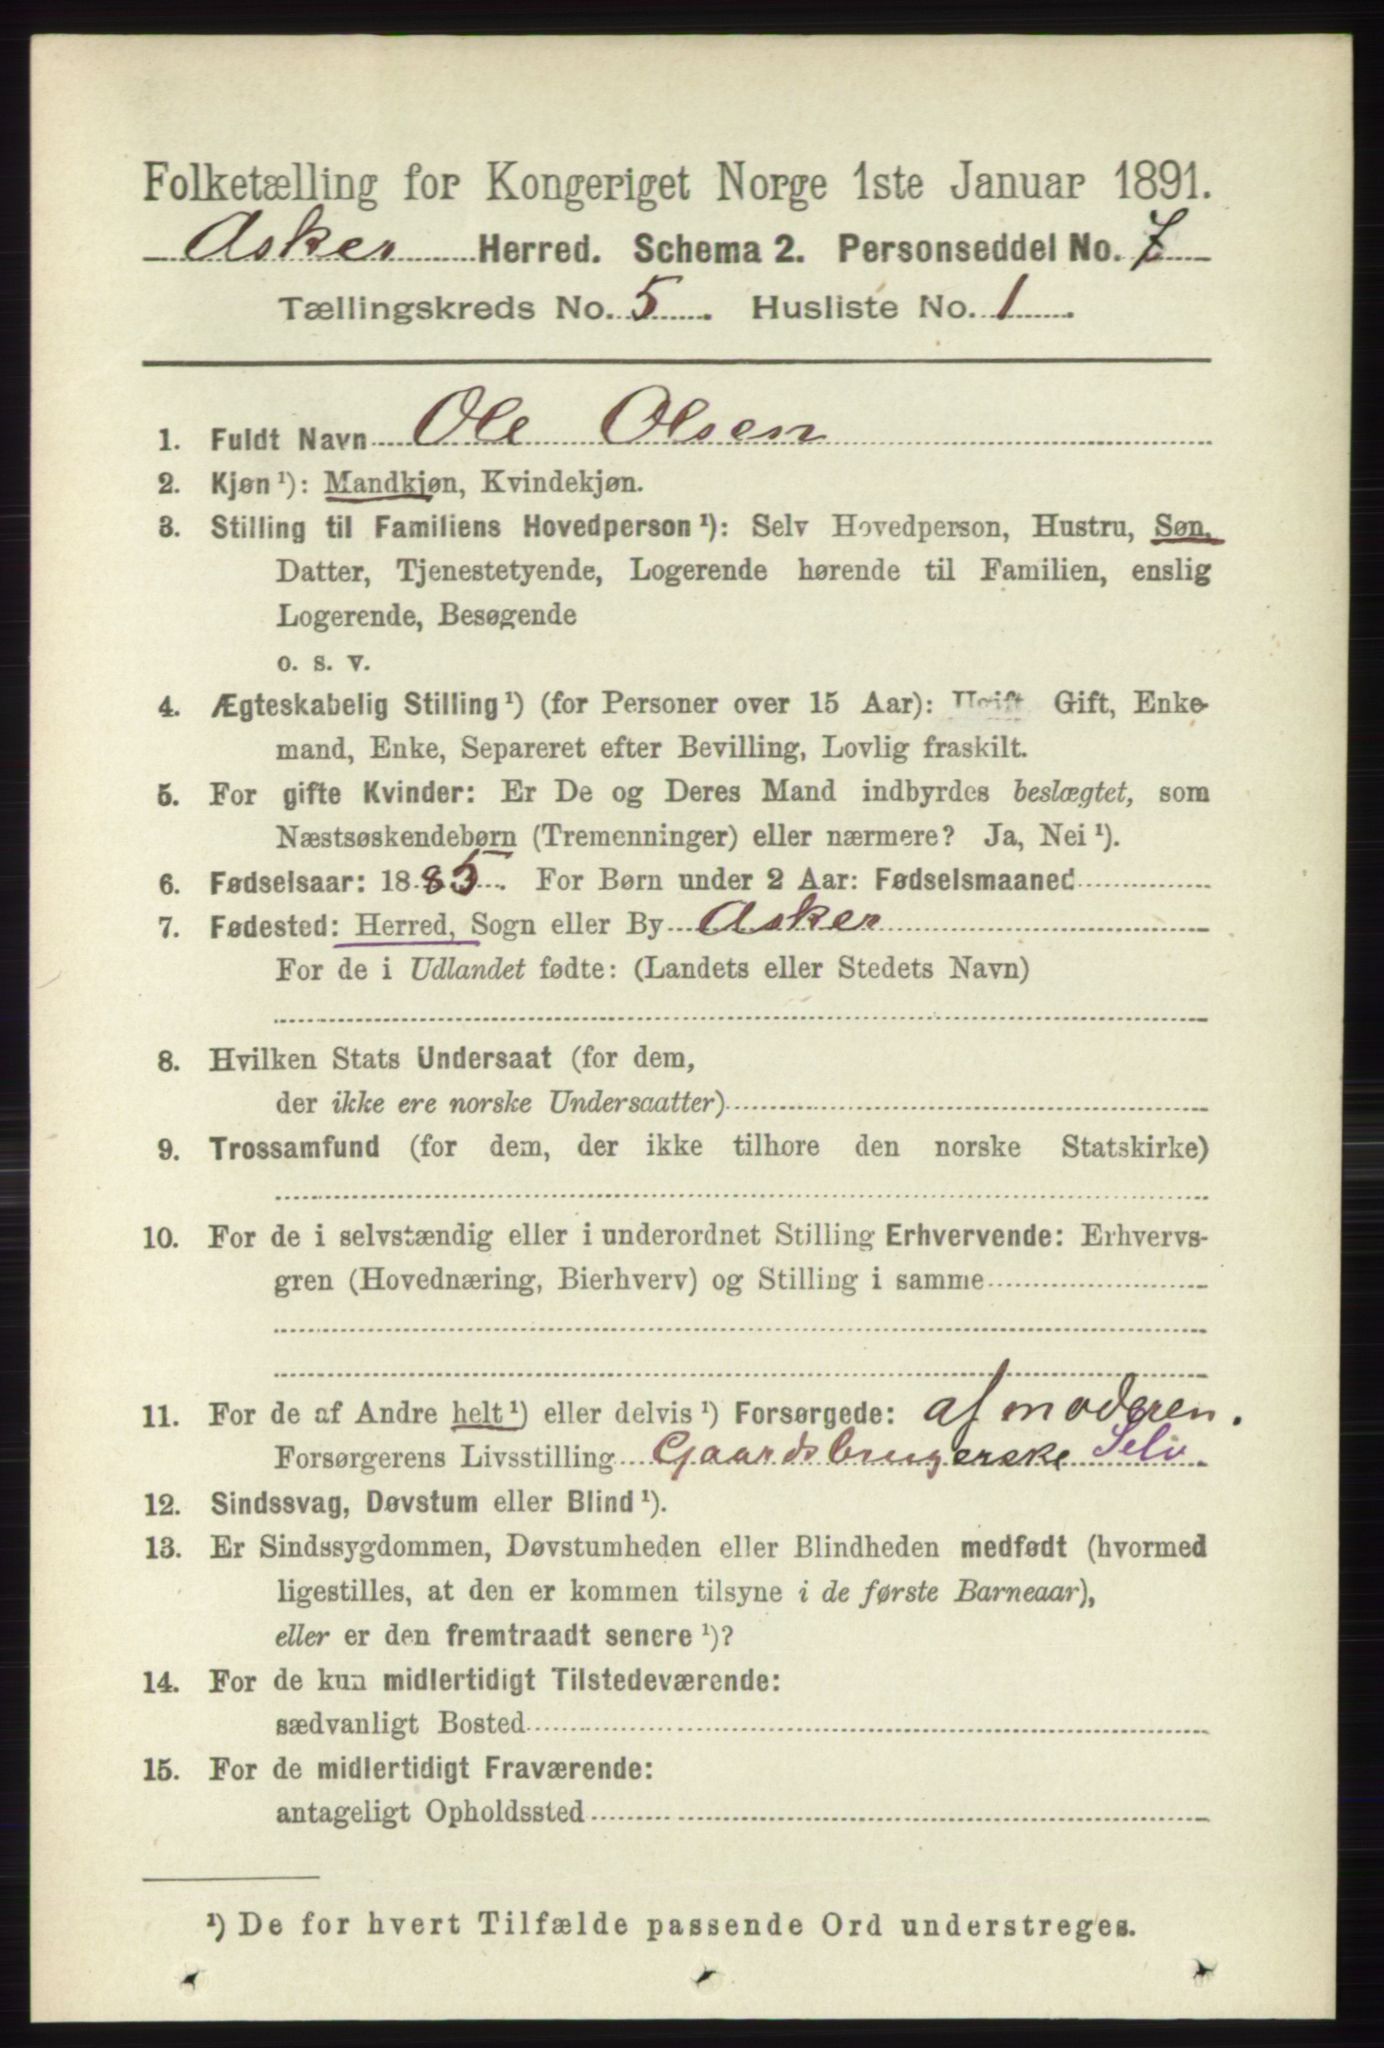 Folketælling for Kongeriget Norge 1ste Januar 1891.
Asker Herred. Schema 2. Personseddel No. 7
Tællingskreds No. 5. Husliste No. 1.
1. Fuldt Navn Ole Olsen
2. Kjøn ¹): Mandkjøn, Kvindekjøn.
3. Stilling til Familiens Hovedperson ¹): Selv Hovedperson, Hustru, Søn,
Datter, Tjenestetyende, Logerende hørende til Familien, enslig
Logerende, Besøgende
o. s. v.
4. Ægteskabelig Stilling ¹) (for Personer over 15 Aar): Ugift Gift, Enke-
mand, Enke, Separeret efter Bevilling, Lovlig fraskilt.
5. For gifte Kvinder: Er De og Deres Mand indbyrdes beslægtet, som
Næstsøskendebørn (Tremenninger) eller nærmere? Ja, Nei ¹).
6. Fødselsaar: 1885. For Børn under 2 Aar: Fødselsmaaned
7. Fødested: Herred, Sogn eller By Asker
For de i Udlandet fødte: (Landets eller Stedets Navn)
8. Hvilken Stats Undersaat (for dem,
der ikke ere norske Undersaatter)
9. Trossamfund (for dem, der ikke tilhore den norske Statskirke)
10. For de i selvstændig eller i underordnet Stilling Erhvervende: Erhvervs-
gren (Hovednæring, Bierhverv) og Stilling i samme
11. For de af Andre helt ¹) eller delvis ¹) Forsørgede: af moderen.
Forsørgerens Livsstilling Gaardsbrugerske Selv
12. Sindssvag, Døvstum eller Blind ¹).
13. Er Sindssygdommen, Døvstumheden eller Blindheden medfødt (hvormed
ligestilles, at den er kommen tilsyne i de første Barneaar),
eller er den fremtraadt senere ¹)?
14. For de kun midlertidigt Tilstedeværende:
sædvanligt Bosted
15. For de midlertidigt Fraværende:
antageligt Opholdssted
¹) De for hvert Tilfælde passende Ord understreges.